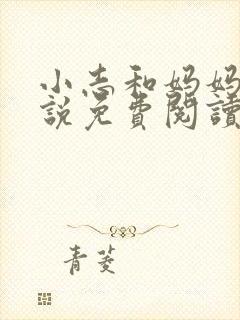 小志和妈妈
說免費閱讀
青菱